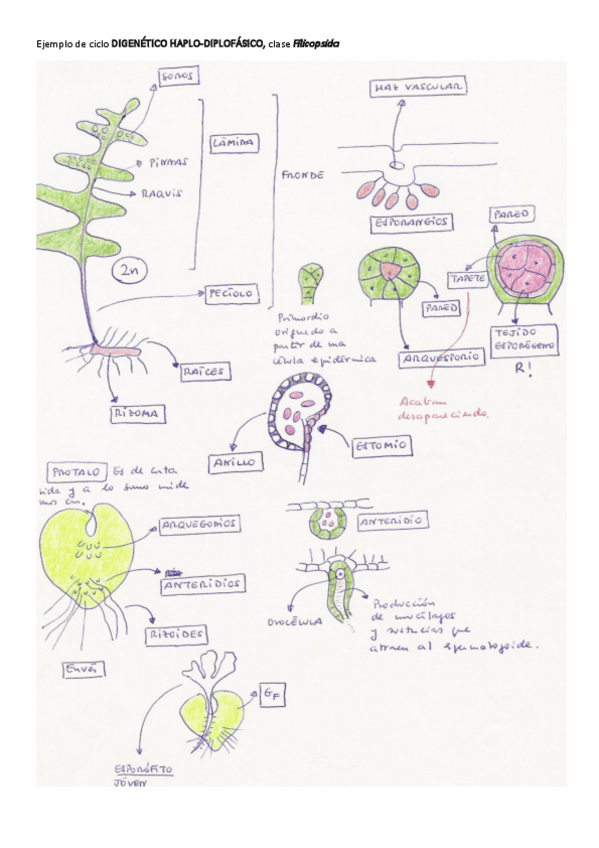 Ejemplo de ciclo DIGENÉTICO HAPLO-DIPLOFÁSICO, clase Filicopsida
SOROS
LÁMINA
PINNAS
RAQUIS
FRONDE
2n
PECÍOLO
RAÍCES
RIZOMA
HAZ VASCULAR
ESPORANGIOS
PARED
TAPETE
PARED
Primordio
originado a
partir de una
célula epidérmica
ARQUESPORIO
TEJIDO
ESPORÓGENO
R!
Acaban
desapareciendo.
ANILLO
ESTOMIO
PROTALO Es de corta
vida y a lo sumo mide
unos cm.
ARQUEGONIOS
ANTERIDIOS
RIZOIDES
Envés
ANTERIDIO
OVOCÉLULA
Producción
de mucílagos
y sustancias que
atraen al espermatozoide.
GF
ESPORÓFITO
JÓVEN